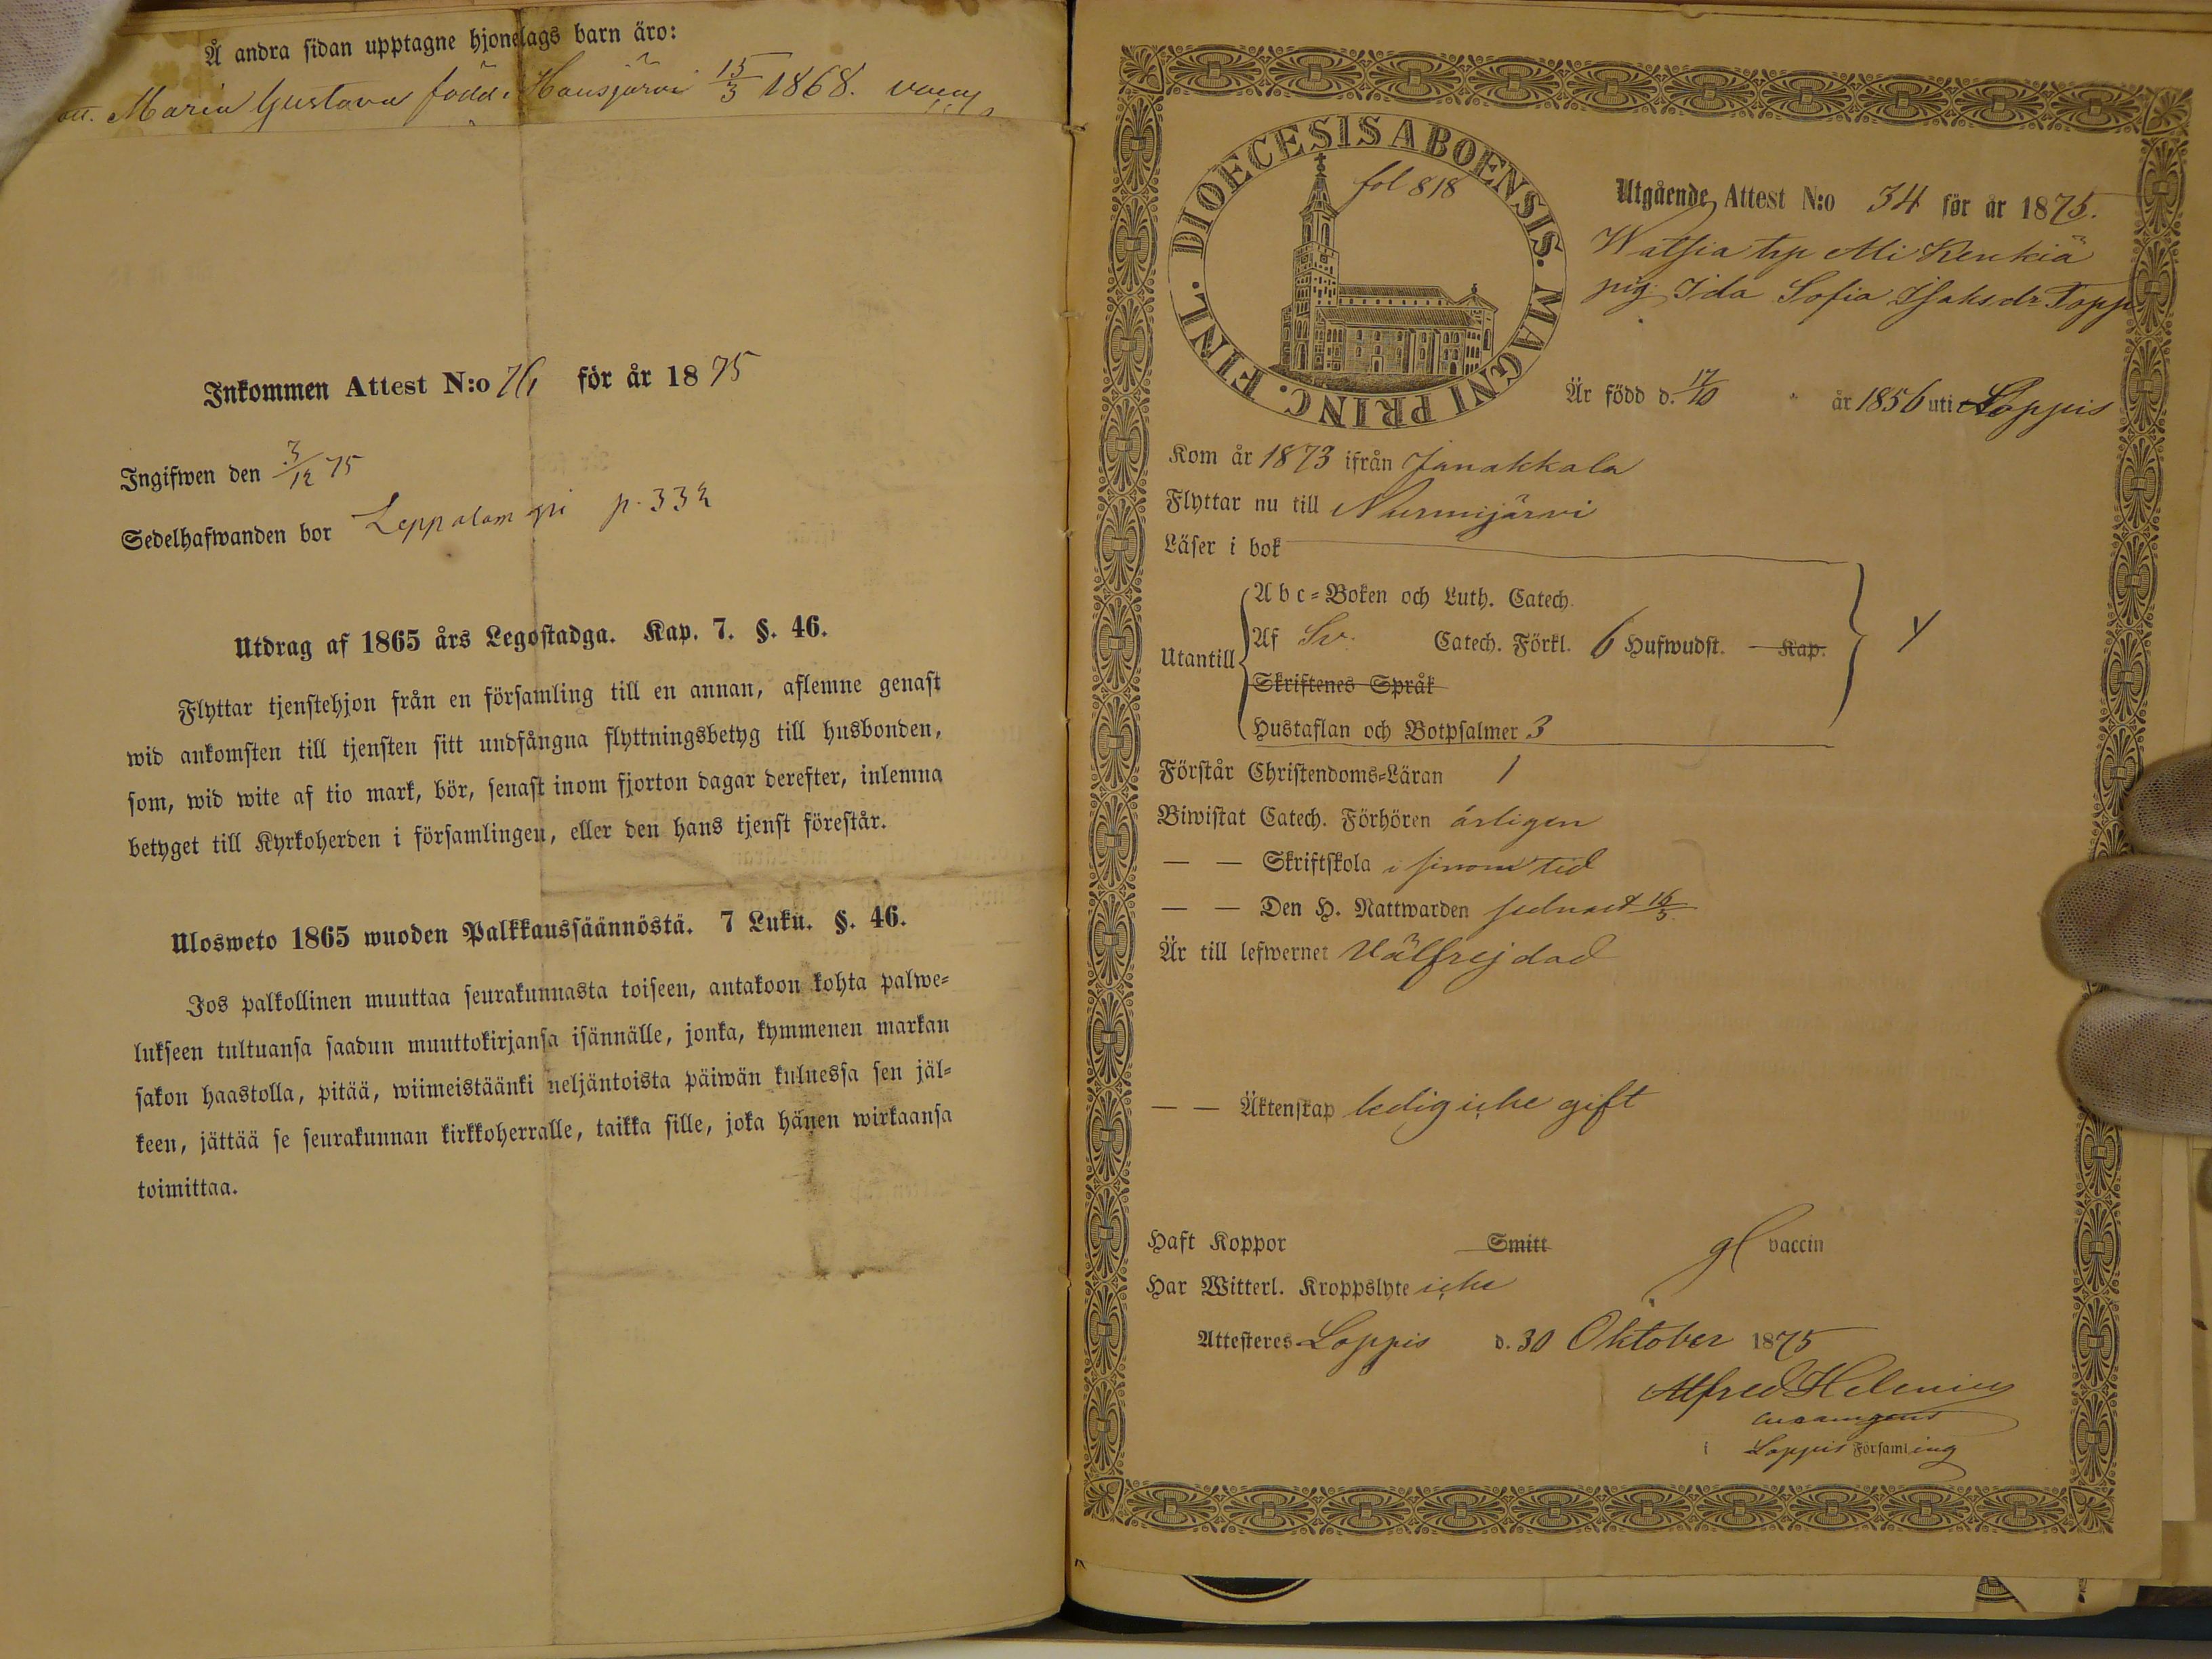 Å andra sidan upptagne hjonelags barn äro:
Maria Gustava född i Hausjärvi 15/3 1868.
Inkommen Attest N:o 76 för år 1875
Ingifwen den 3/12 75
Sedelhafwanden bor Leppälampi p. 332
Utdrag af 1865 års Legostadga. Kap. 7. §. 46.
Flyttar tjenstehjon från en församling till en annan, aflemne genast
wid ankomsten till tjensten sitt undfångna flyttningsbetyg till husbonden,
som, wid wite af tio mark, bör, senast inom fjorton dagar derefter, inlemna
betyget till Kyrkoherden i församlingen, eller den hans tjenst förestår.
Ulosweto 1865 wuoden Palkkaussäännöstä. 7 Luku. §. 46.
Jos palkollinen muuttaa seurakunnasta toiseen, antakoon kohta palwe-
lukseen tultuansa saadun muuttokirjansa isännälle, jonka, kymmenen markan
sakon haastolla, pitää, wiimeistäänki neljäntoista päiwän kulnessa sen jäl-
keen, jättää se seurakunnan kirkkoherralle, taikka sille, joka hänen wirkaansa
toimittaa.
DIOECESIS ABOENSIS. MAGNI PRINC. FINL.
fol 818
Utgående Attest N:o 34 för år 1875.
Watsia trp Ali Kenkiä
pig. Ida Sofia Isaksdr Topp
Är född d. 17/10 år 1856 uti Loppis
Kom år 1873 ifrån Janakkala
Flyttar nu till Nurmijärvi
Läser i bok
Abc-Boken och Luth. Catech.
Utantill Af Sv. Catech. Förkl. 6 Hufwudst. Kap.
Skriftenes Språk
Hustaflan och Botpsalmer 3
Förstår Christendoms-Läran 1
Biwistat Catech. Förhören årligen
— — Skriftskola i sinom tid
— — Den H. Nattwarden sednast 16/5
Är till lefwernet Välfrejdad
— — Äktenskap ledig icke gift
Haft Koppor Smitt gl vaccin
Har Witterl. Kroppslyte icke
Attesteres Loppis d. 30 Oktober 1875
Alfred Helenius
i Loppis Församling